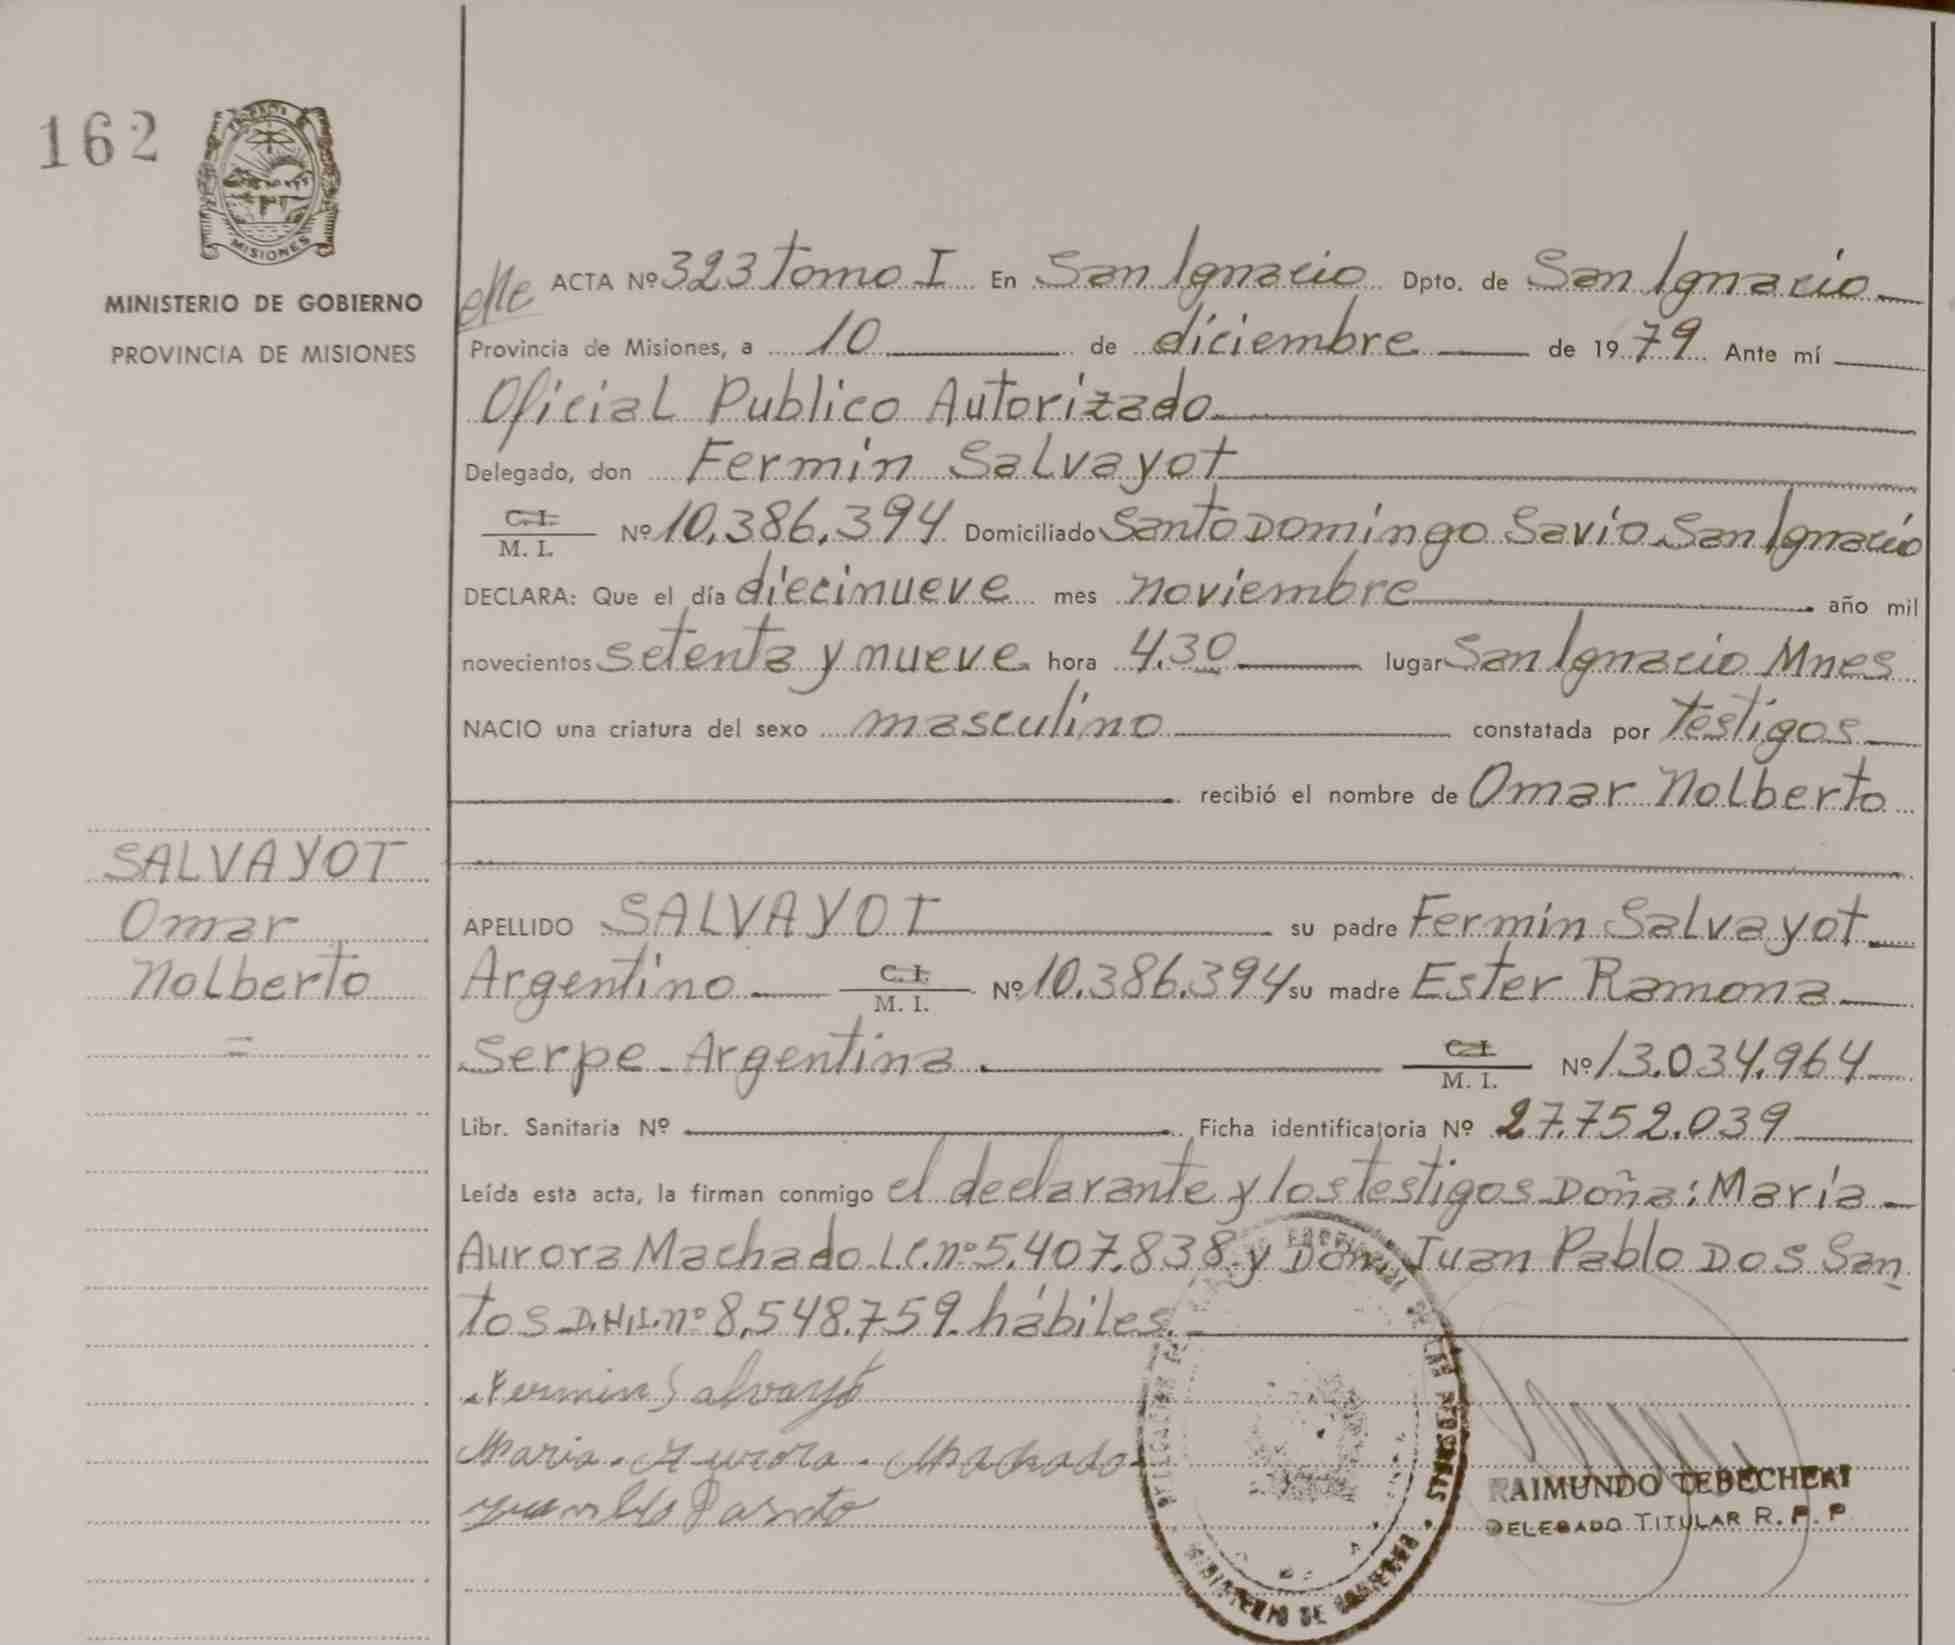 162
MISIONES
MINISTERIO DE GOBIERNO
PROVINCIA DE MISIONES
ACTA Nº 323 tomo I En San Ignacio Dpto. de San Ignacio
Provincia de Misiones, a 10 de diciembre de 1979 Ante mí
Oficial Publico Autorizado
Delegado, don Fermin Salvayot
C. I.
M. I. Nº 10.386.394 Domiciliado Santo Domingo Savio San Ignacio
DECLARA: Que el día diecinueve mes noviembre año mil
novecientos setenta y nueve hora 4.30 lugar San Ignacio Mnes
NACIO una criatura del sexo masculino constatada por testigos
recibió el nombre de Omar Nolberto
SALVAYOT
Omar
Nolberto
APELLIDO SALVAYOT su padre Fermin Salvayot
Argentino C. I.
M. I. Nº 10.386.394 su madre Ester Ramona
Serpe Argentina C. I.
M. I. Nº 13.034.964
Libr. Sanitaria Nº Ficha identificatoria Nº 27.752.039
Leída esta acta, la firman conmigo el declarante y los testigos Doña: María
Aurora Machado L.C. nº 5.407.838 y Don: Juan Pablo Dos San
tos D.N.I. nº 8.548.759 hábiles.
Fermin Salvayó
Maria Aurora Machado
MINISTERIO DE GOBIERNO
RAIMUNDO TEBECHERI
DELEGADO TITULAR R. P. P